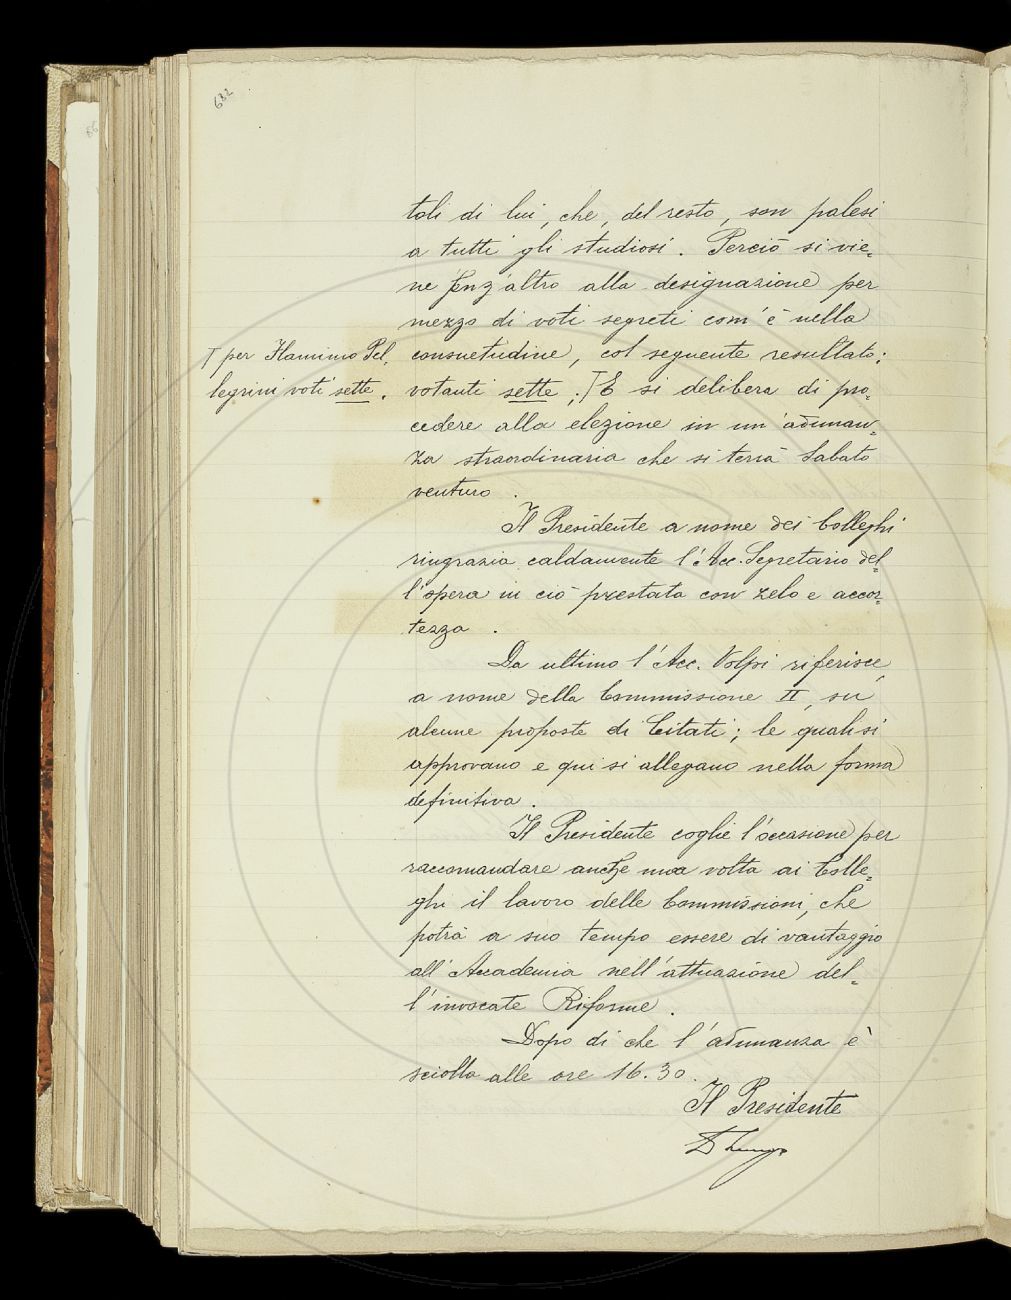 682
toli di lui, che, del resto, son palesi
a tutti gli studiosi. Perciò si vie=
ne senz'altro alla designazione per
mezzo di voti segreti com'è nella
consuetudine, col seguente resultato:
votanti sette; ⌈E si delibera di pro=
cedere alla elezione in un'adunan=
za straordinaria che si terrà Sabato
venturo.
⌈per Flaminio Pel=
legrini voti sette.
Il Presidente a nome dei Colleghi
ringrazia caldamente l'Acc. Segretario del=
l'opera in ciò prestata con zelo e accor=
tezza.
Da ultimo l'Acc. Volpi riferisce,
a nome della Commissione II, su
alcune proposte di Citati; le quali si
approvano e qui si allegano nella forma
definitiva.
Il Presidente coglie l'occasione per
raccomandare anche una volta ai Colle=
ghi il lavoro delle Commissioni, che
potrà a suo tempo essere di vantaggio
all'Accademia nell'attuazione del=
l'invocate Riforme.
Dopo di che l'adunanza è
sciolta alle ore 16.30.
Il Presidente